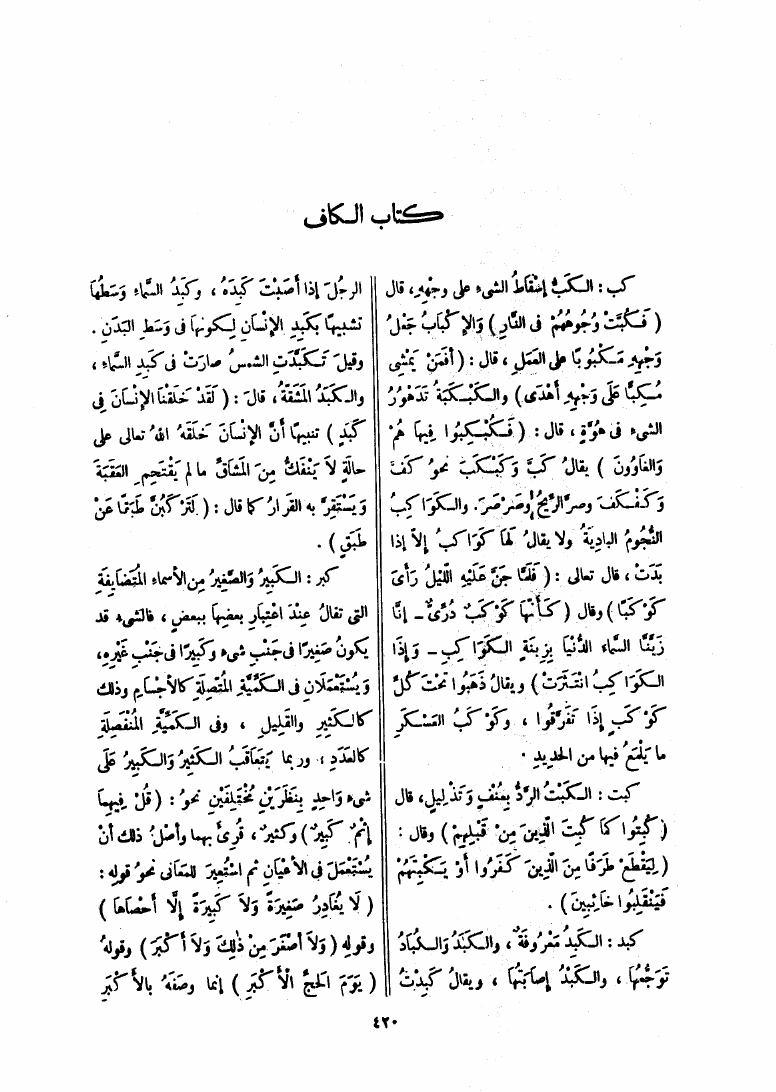 كتاب الكاف
كب : الكَبُّ إسْقَاطُ الشىء على وجْهِهِ، قال
( فَكُبَّتْ وُجُوهُهُمْ فى النَّارِ ) وَالإِكْبَابُ جَعْلُ
وَجْهِهِ مَكْبُوبًا على العَمَلِ ، قال : ( أَفَمَنْ يَمْشِى
مُكِبًّا عَلَى وَجْهِهِ أَهْدَى ) والكَبْكَبَةُ تَدَهْوُرُ
الشىء فى هُوَّةٍ ، قال : ( فَكُبْكِبُوا فِيهَا هُمْ
وَالْغَاوُونَ ) يقالُ كَبَّ وَكَبْكَبَ نحوُ كَفَّ
وَكَفْكَفَ وصرَّ الرِّيحُ وصَرْصَرَ. والكَوَاكِبُ
النُّجُومُ البَادِيَةُ ولا يقالُ لَهَا كَوَاكِبُ إلاَّ إذا
بَدَتْ ، قال تعالى : ( فَلَمَّا جَنَّ عَلَيْهِ اللَّيْلُ رَأَى
كَوْكَبًا ) وقال ( كَأَنَّهَا كَوْكَبٌ دُرِّىٌّ - إنَّا
زَيَّنَّا السماء الدُّنْيَا بِزِينَةٍ الكَوَاكِبِ - وَإذَا
الكَوَاكِبُ انْتَثَرَتْ ) ويقالُ ذَهَبُوا تحتَ كُلِّ
كَوْكَبٍ إذَا تَفَرَّقُوا ، وكَوْكَبُ العَسْكَرِ
ما يَلْمَعُ فيها من الحَدِيدِ .
كبت : الكَبْتُ الرَّدُّ بِعُنْفٍ وَتَذْلِيلٍ، قال
( كُبِتُوا كَمَا كُبِتَ الَّذِينَ مِنْ قَبْلِهِمْ ) وقال :
( لِيَقْطَعَ طَرَفًا مِنَ الَّذِينَ كَفَرُوا أَوْ يَكْبِتَهُمْ
فَيَنْقَلِبُوا خَائِبِينَ ) .
كبد : الكَبِدُ مَعْرُوفَةٌ، والكَبَدُ وَالكُبَادُ
تَوَجُّعُهَا ، والكَبْدُ إصَابَتُهَا ، ويقالُ كَبَدْتُ
الرجُلَ إذا أَصَبْتَ كَبِدَهُ ، وكَبِدُ السَّمَاءِ وَسَطُهَا
تشبيهًا بكَبِدِ الإنْسَانِ لِكَوْنِهَا فى وَسَطِ البَدَنِ .
وقيلَ تَكَبَّدَتِ الشمسُ صارَتْ فى كَبِدِ السَّمَاءِ ،
والكَبَدُ المَشَقَّةُ ، قالَ : ( لَقَدْ خَلَقْنَا الإنْسَانَ فِى
كَبَدٍ ) تنبيهًا أنَّ الإنْسَانَ خَلَقَهُ اللهُ تعالى على
حالَةٍ لاَ يَنْفَكُّ مِنَ المَشَاقِّ مالم يَقْتَحِمِ العَقَبَةَ
وَيَسْتَقِرَّ به القَرَارُ كما قال : ( لَتَرْكَبُنَّ طَبَقًا عَنْ
طَبَقٍ ) .
كبر : الكَبِيرُ والصَّغِيرُ مِن الأسماء المُتَضَايِفَةِ
التى تقالُ عِنْدَ اعْتِبَارِ بعضِها ببعضٍ ، فالشىء قد
يكونُ صَغِيرًا فى جَنْبِ شىء وكبيرًا فى جَنْبِ غَيْرِهِ،
وَيُسْتَعْمَلَان فى الكَمِّيَّةِ المُتَّصِلَةِ كالأجْسَامِ وذلك
كالكَثِيرِ والقَلِيلِ ، وفى الكَمِّيَّةِ المُنْفَصِلَةِ
كالعَدَدِ ، وربما يَتَعَاقَبُ الكَثِيرُ وَالكَبِيرُ عَلَى
شىء وَاحِدٍ بِنَظَرَيْنِ مُخْتَلِفَيْنِ نحوُ : ( قُلْ فِيهِمَا
إثْمٌ كَبِيرٌ ) وكَثِيرٌ ، قُرِئَ بهما وأصْلُ ذلك أنْ
يُسْتَعْمَلَ فى الأعْيَانِ ثم اسْتُعِيرَ للمَعَانى نحوُ قوله :
( لَا يُغَادِرُ صَغِيرَةً وَلاَ كَبِيرَةً إلَّا أحْصَاهَا )
وقولِهِ ( وَلاَ أَصْغَرَ مِنْ ذَلِكَ وَلاَ أَكْبَرَ ) وقوله
( يَوْمَ الحَجِّ الأَكْبَرِ ) إنما وصَفَهُ بالأَكْبَرِ
٤٢٠